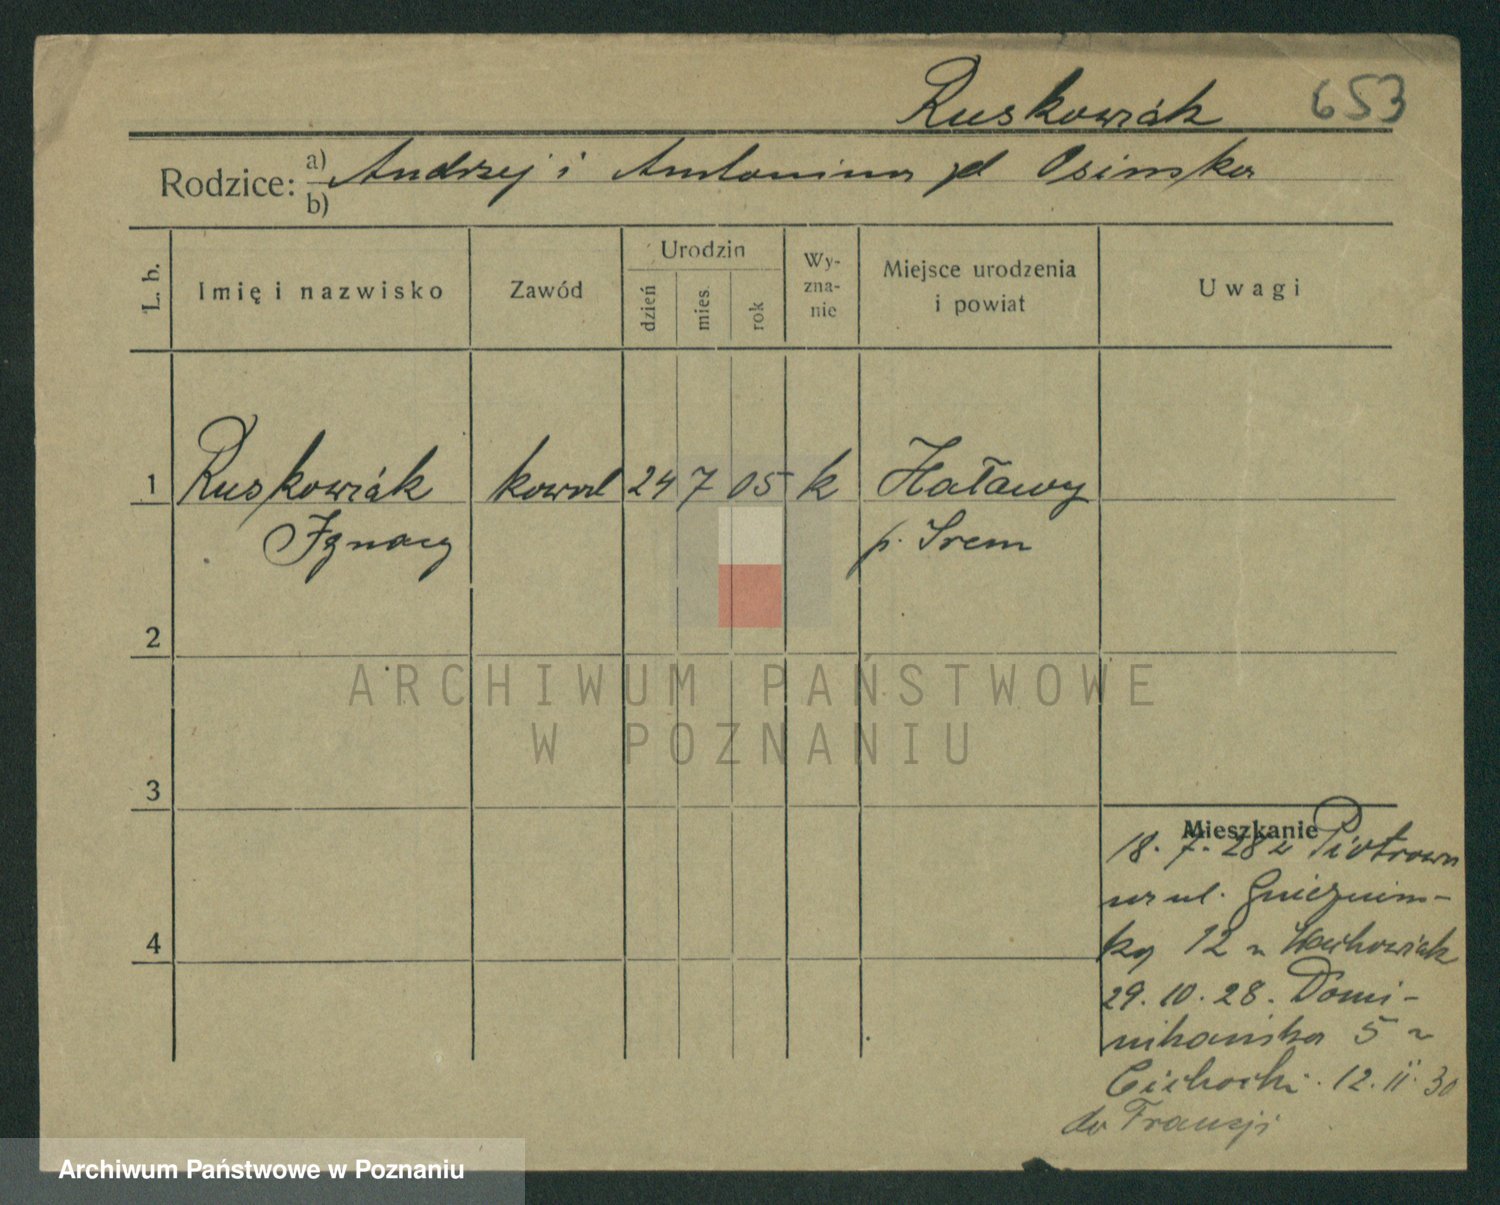 Ruskowiak 653
Rodzice: a) Andrzej i Antonina zd Osinska
b)
L. b. Imię i nazwisko Zawód Urodzin dzień mies. rok Wy-zna-nie Miejsce urodzenia i powiat Uwagi
1 Ruskowiak kowal 24 7 05 k Haławy
Ignacy p. Srem
2
ARCHIWUM PAŃSTWOWE
W POZNANIU
3
Mieszkanie
18. 7. 28 z Piotrowa
ul. Gnieznins-
ka 12 Wachowiak
29. 10. 28. Domi-
nikańska 5
4
Cichocki. 12. II. 30
do Francji
Archiwum Państwowe w Poznaniu